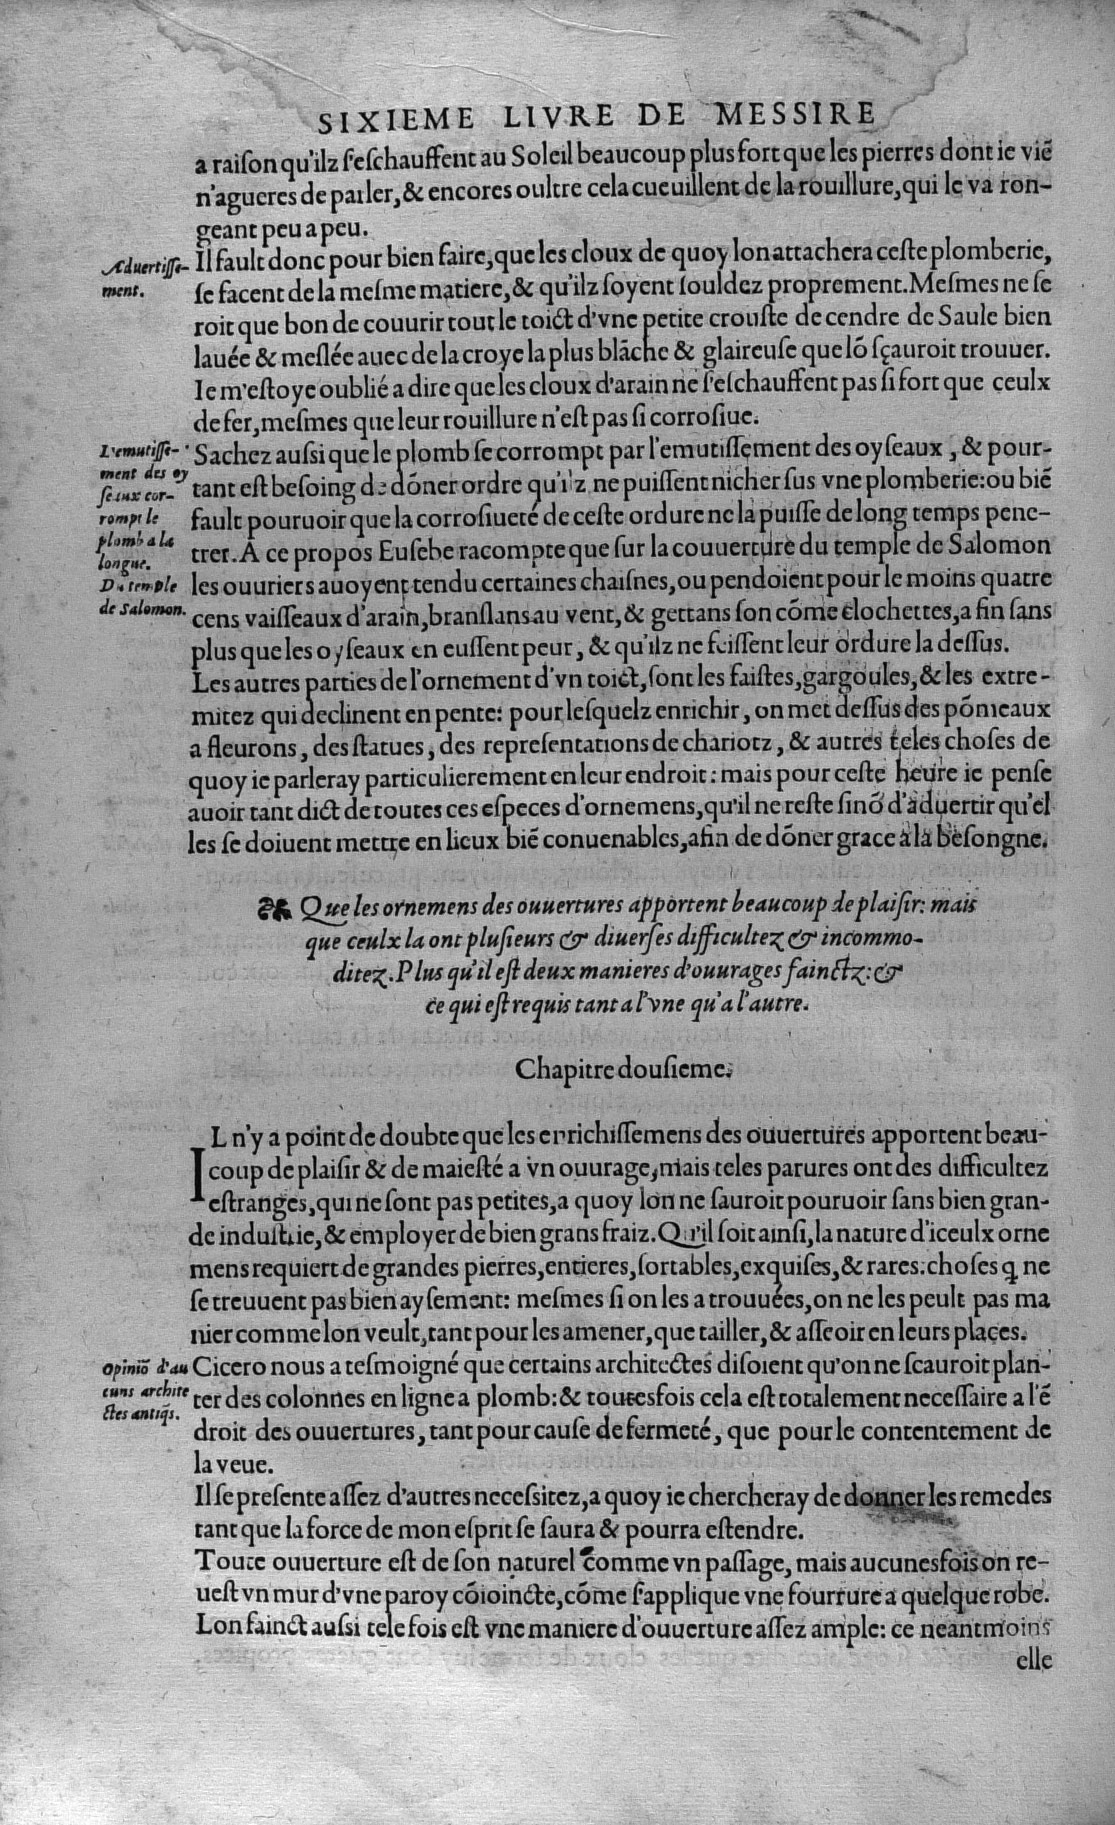 SIXIEME LIVRE DE MESSIRE
a raison qu'ilz s'eschauffent au Soleil beaucoup plus fort que les pierres dont ie viẽ
n'agueres de parler, & encores oultre cela cueuillent de la rouillure, qui le va ron-
geant peu a peu.
Aduertisse-
ment.
Il fault donc pour bien faire, que les cloux de quoy lon attachera ceste plomberie,
se facent de la mesme matiere, & qu'ilz soyent souldez proprement. Mesmes ne se
roit que bon de couurir tout le toict d'vne petite crouste de cendre de Saule bien
lauée & meslée auec de la croye la plus blãche & glaireuse que lõ sçauroit trouuer.
Ie m'estoye oublié a dire que les cloux d'arain ne s'eschauffent pas si fort que ceulx
de fer, mesmes que leur rouillure n'est pas si corrosiue.
L'emutisse-
ment des oy
seaux cor-
rompt le
plomb a la
longue.
Du temple
de Salomon.
Sachez aussi que le plomb se corrompt par l'emutissement des oyseaux, & pour-
tant est besoing de dõner ordre qu'ilz ne puissent nicher sus vne plomberie: ou biẽ
fault pouruoir que la corrosiueté de ceste ordure ne la puisse de long temps pene-
trer. A ce propos Eusebe racompte que sur la couuerture du temple de Salomon
les ouuriers auoyent tendu certaines chaisnes, ou pendoient pour le moins quatre
cens vaisseaux d'arain, branslans au vent, & gettans son cõme clochettes, a fin sans
plus que les oyseaux en eussent peur, & qu'ilz ne feissent leur ordure la dessus.
Les autres parties de l'ornement d'vn toict, sont les faistes, gargoules, & les extre-
mitez qui declinent en pente: pour lesquelz enrichir, on met dessus des põmeaux
a fleurons, des statues, des representations de chariotz, & autres teles choses de
quoy ie parleray particulierement en leur endroit: mais pour ceste heure ie pense
auoir tant dict de toutes ces especes d'ornemens, qu'il ne reste sinõ d'aduertir qu'el
les se doiuent mettre en lieux biẽ conuenables, afin de dõner grace a la besongne.
Que les ornemens des ouuertures apportent beaucoup de plaisir: mais
que ceulx la ont plusieurs & diuerses difficultez & incommo-
ditez. Plus qu'il est deux manieres d'ouurages fainctz: &
ce qui est requis tant a l'vne qu'a l'autre.
Chapitre dousieme.
IL n'y a point de doubte que les enrichissemens des ouuertures apportent beau-
coup de plaisir & de maiesté a vn ouurage, mais teles parures ont des difficultez
estranges, qui ne sont pas petites, a quoy lon ne sauroit pouruoir sans bien gran-
de industrie, & employer de bien grans fraiz. Qu'il soit ainsi, la nature d'iceulx orne
mens requiert de grandes pierres, entieres, sortables, exquises, & rares: choses q̃ ne
se treuuent pas bien aysement: mesmes si on les a trouuées, on ne les peult pas ma
nier comme lon veult, tant pour les amener, que tailler, & asseoir en leurs places.
Opiniõ d'au
cuns archite
ctes antiq̃s.
Cicero nous a tesmoigné que certains architectes disoient qu'on ne scauroit plan-
ter des colonnes en ligne a plomb: & toutesfois cela est totalement necessaire a l'ẽ
droit des ouuertures, tant pour cause de fermeté, que pour le contentement de
la veue.
Il se presente assez d'autres necessitez, a quoy ie chercheray de donner les remedes
tant que la force de mon esprit se saura & pourra estendre.
Toute ouuerture est de son naturel comme vn passage, mais aucunesfois on re-
uest vn mur d'vne paroy cõioincte, cõme s'applique vne fourrure a quelque robe.
Lon fainct aussi tele fois est vne maniere d'ouuerture assez ample: ce neantmoins
elle